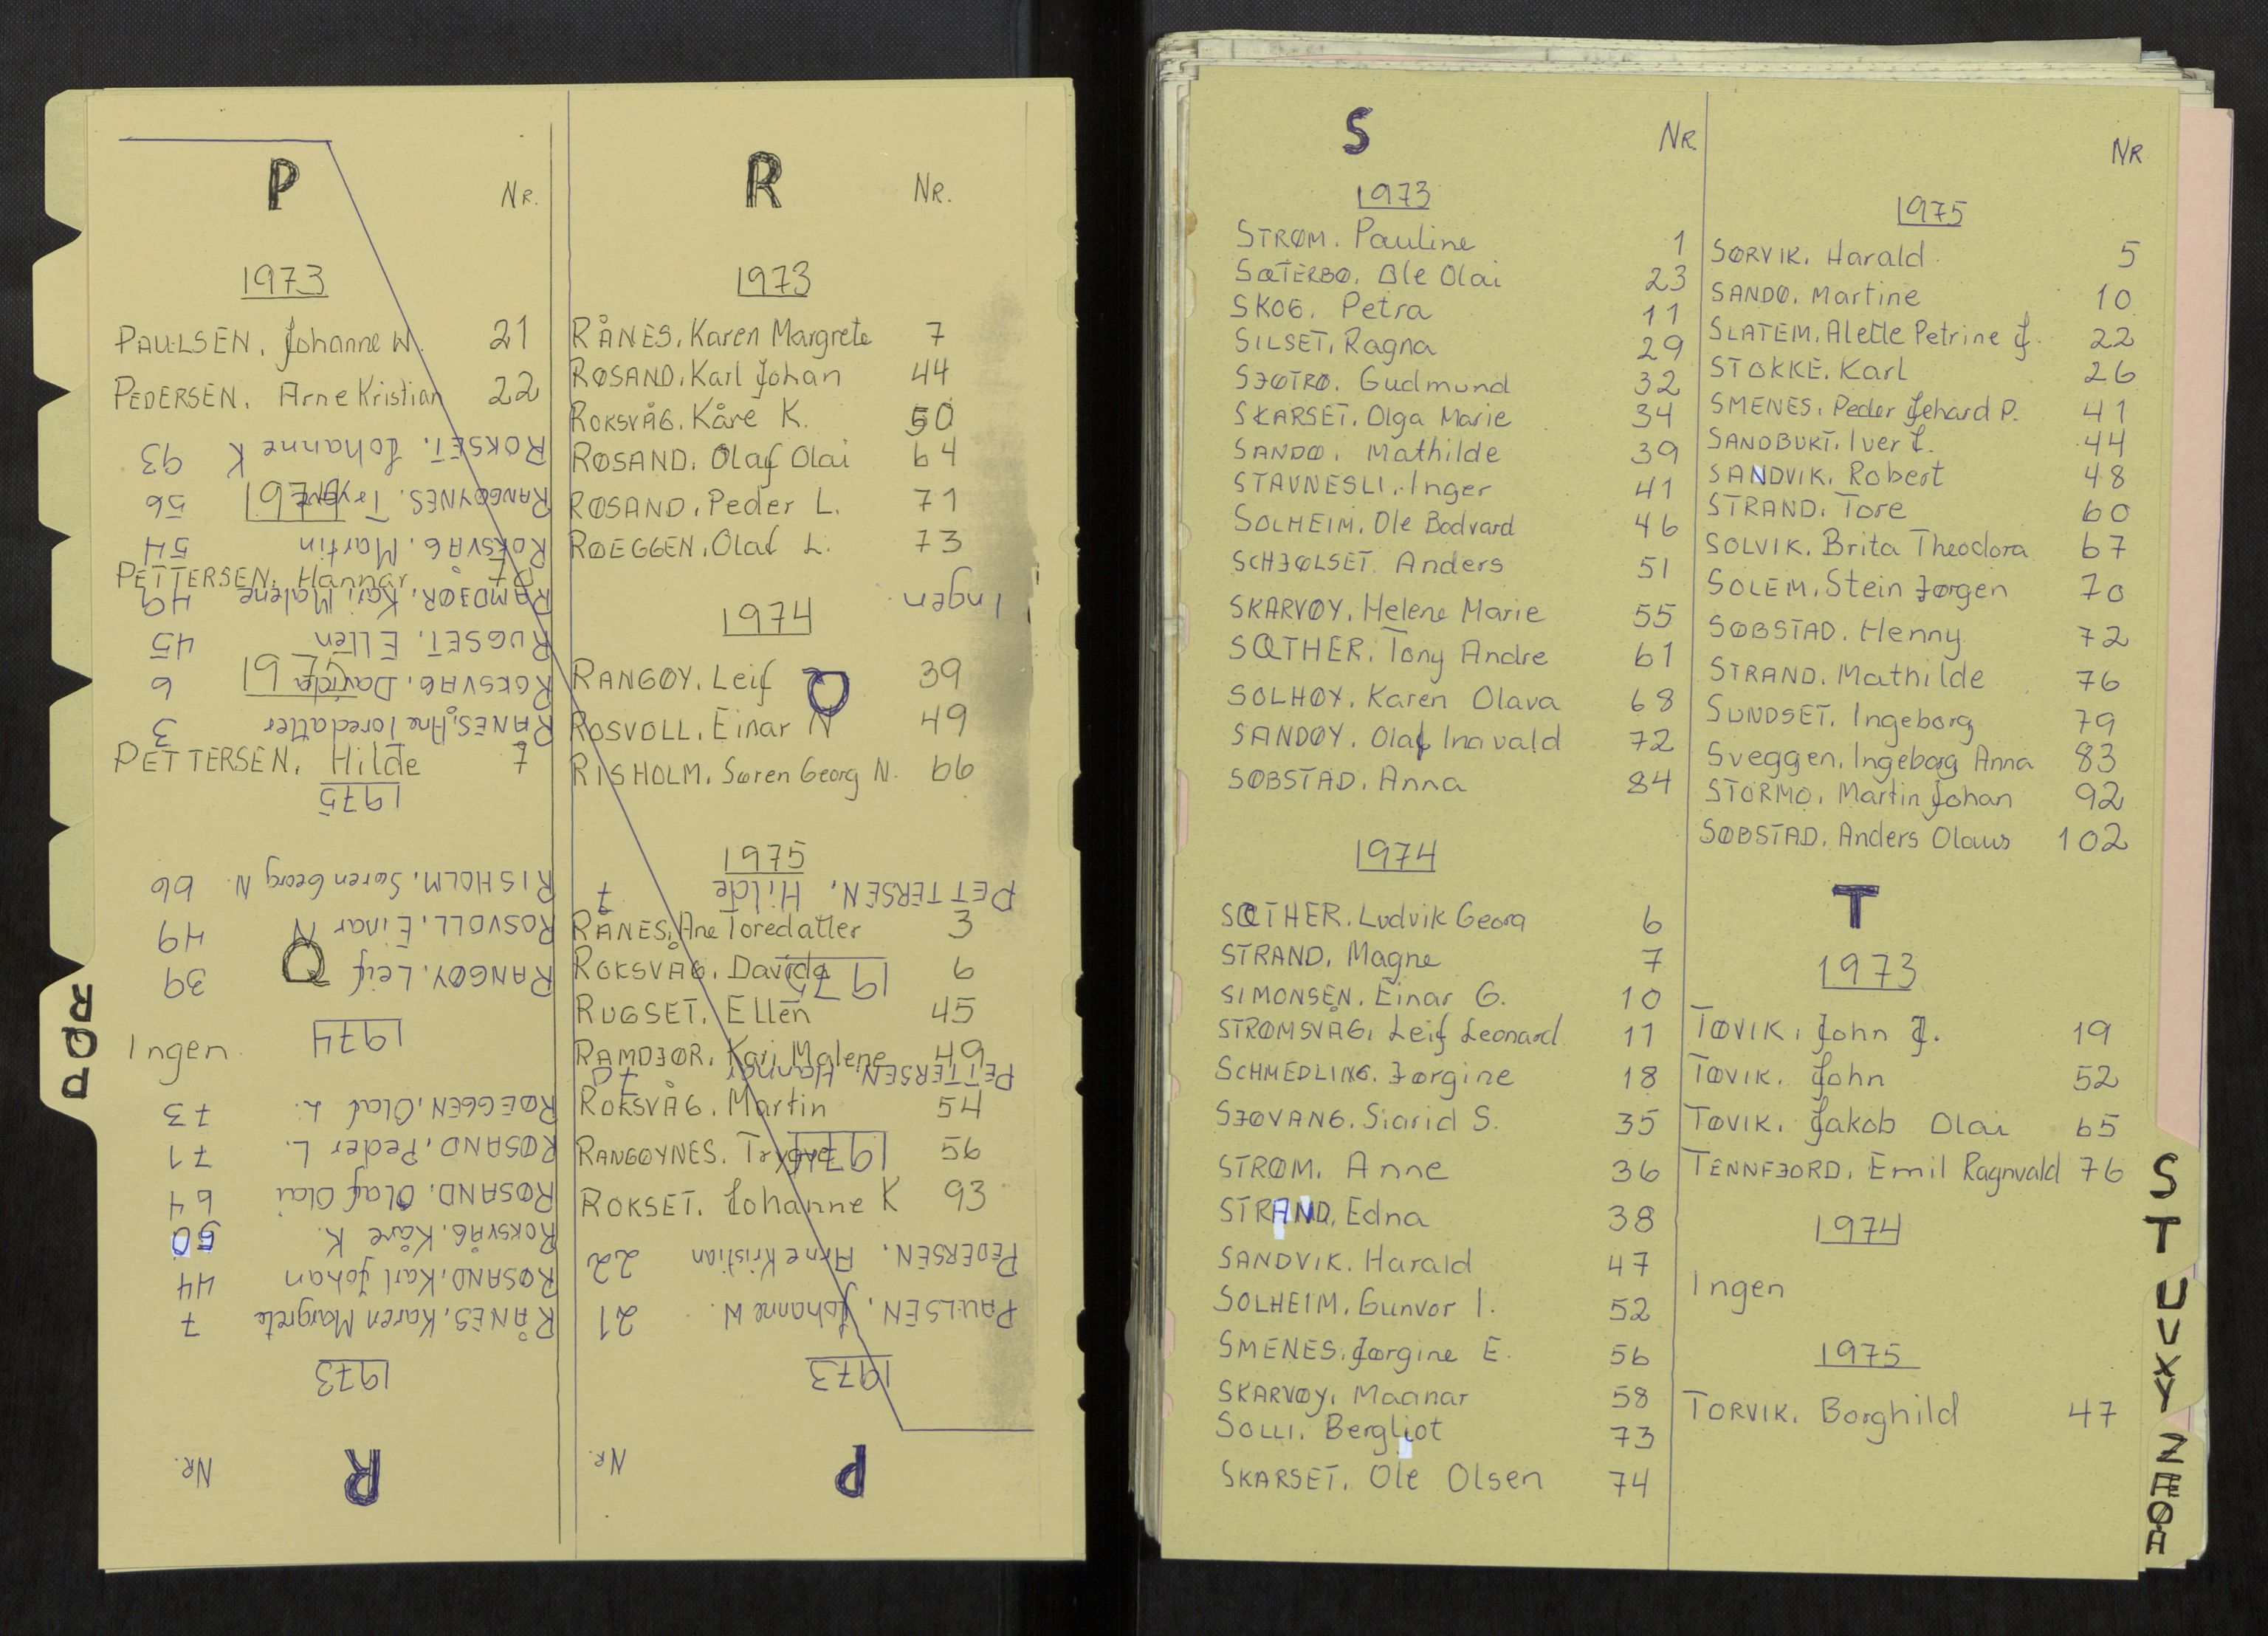 P
Nr.
1973
PAULSEN, Johanne W. 21
PEDERSEN, Arne Kristian 22
1974
PETTERSEN, Hannar 70
1975
PETTERSEN, Hilde 7
Q
Ingen
R
Nr.
1973
RÅNES, Karen Margrete 7
RØSAND, Karl Johan 44
ROKSVÅG, Kåre K. 50
RØSAND, Olaf Olai 64
RØSAND, Peder L. 71
RØEGGEN, Olaf L. 73
1974
RANGØY, Leif 39
ROSVOLL, Einar N 49
RISHOLM, Søren Georg N. 66
1975
RÅNES, Ane Toredatter 3
ROKSVÅG, Davida 6
RUGSET, Ellen 45
RAMDJØR, Kari Malene 49
ROKSVÅG, Martin 54
RANGØYNES, Trygve 56
ROKSET, Johanne K 93
P
Nr.
1973
PAULSEN, Johanne W. 21
PEDERSEN, Arne Kristian 22
PETTERSEN, Hannar 70
1975
PETTERSEN, Hilde 7
Q
Ingen
R
Nr.
1973
RÅNES, Karen Margrete 7
RØSAND, Karl Johan 44
ROKSVÅG, Kåre K. 50
RØSAND, Olaf Olai 64
RØSAND, Peder L. 71
RØEGGEN, Olaf L. 73
1974
RANGØY, Leif 39
ROSVOLL, Einar N 49
RISHOLM, Søren Georg N 66
1975
RÅNES, Ane Toredatter 3
ROKSVÅG, Davida 6
RUGSET, Ellen 45
RAMDJØR, Kari Malene 49
ROKSVÅG, Martin 54
RANGØYNES, Trygve 56
ROKSET, Johanne K 93
P
Q
R
S
NR.
1973
STRØM, Pauline 1
SÆTERBØ, Ole Olai 23
SKOG, Petra 11
SILSET, Ragna 29
SJØTRØ, Gudmund 32
SKARSET, Olga Marie 34
SANDØ, Mathilde 39
STAVNESLI, Inger 41
SOLHEIM, Ole Bodvard 46
SCHJØLSET, Anders 51
SKARVØY, Helene Marie 55
SÆTHER, Tony Andre 61
SOLHØY, Karen Olava 68
SANDØY, Olaf Ingvald 72
SØBSTAD, Anna 84
1974
SÆTHER, Ludvik Georg 6
STRAND, Magne 7
SIMONSEN, Einar G. 10
STRØMSVÅG, Leif Leonard 11
SCHMEDLING, Jørgine 18
SJØVANG, Sigrid S. 35
STRØM, Anne 36
STRAND, Edna 38
SANDVIK, Harald 47
SOLHEIM, Gunvor I. 52
SMENES, Jørgine E. 56
SKARVØY, Magnar 58
SOLLI, Bergliot 73
SKARSET, Ole Olsen 74
NR
1975
SØRVIK, Harald 5
SANDØ, Martine 10
SLATEM, Alette Petrine J. 22
STOKKE, Karl 26
SMENES, Peder Jehard P. 41
SANDBUKT, Iver J. 44
SANDVIK, Robert 48
STRAND, Tore 60
SOLVIK, Brita Theodora 67
SOLEM, Stein Jørgen 70
SØBSTAD, Henny 72
STRAND, Mathilde 76
SUNDSET, Ingeborg 79
Sveggen, Ingeborg Anna 83
STORMO, Martin Johan 92
SØBSTAD, Anders Olaus 102
T
1973
TØVIK, John J. 19
TØVIK, John 52
TØVIK, Jakob Olai 65
TENNFJORD, Emil Ragnvald 76
1974
Ingen
1975
TORVIK, Borghild 47
S
T
U
V
X
Y
Z
Æ
Ø
Å